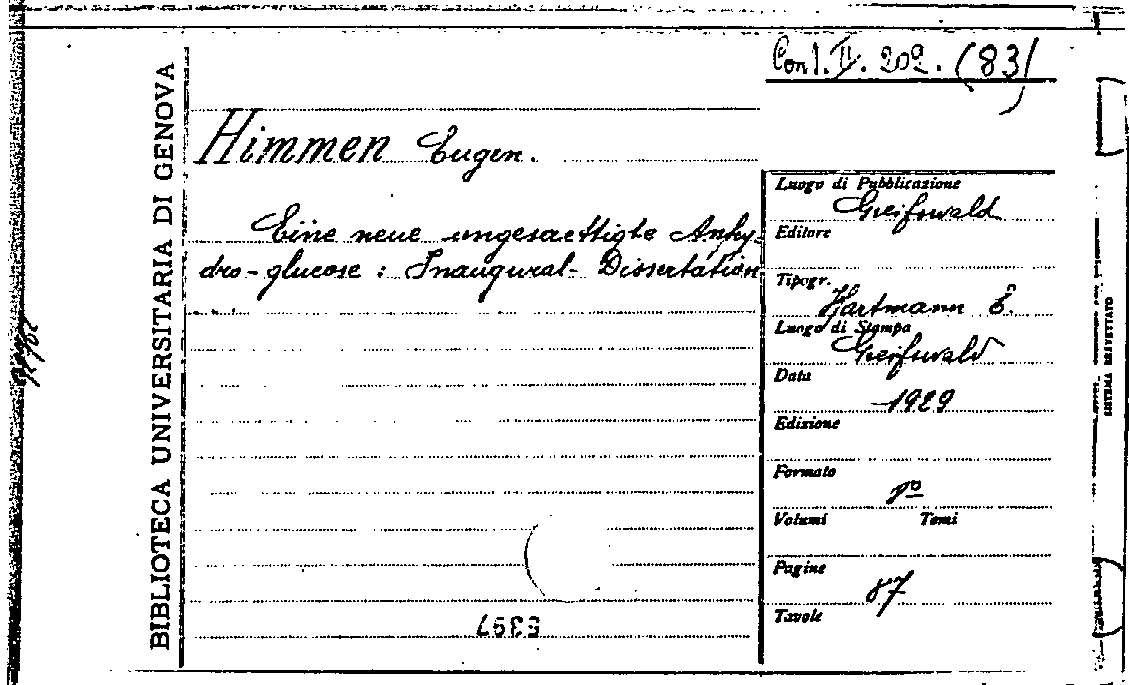 Con 1. II. 202. (83)
BIBLIOTECA UNIVERSITARIA DI GENOVA
Himmen Eugen.
Eine neue ungesaettigte Anhy-
dro-glucose : Inaugural-Dissertation
Luogo di Pubblicazione
Greifswald
Editore
Tipogr.
Hartmann E.
Luogo di Stampa
Greifswald
Data
1929
Edizione
Formato
8º
Volumi Tomi
Pagine
87
Tavole
5397
SISTEMA BREVETTATO